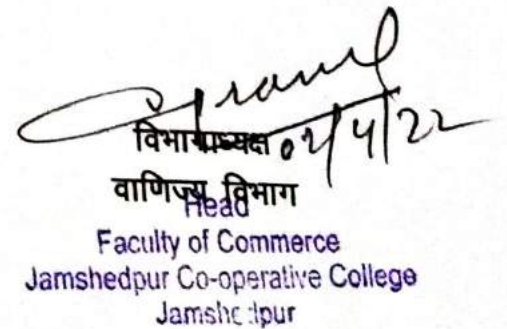 02/4/22
विभागाध्यक्ष
वाणिज्य विभाग
Head
Faculty of Commerce
Jamshedpur Co-operative College
Jamshedpur